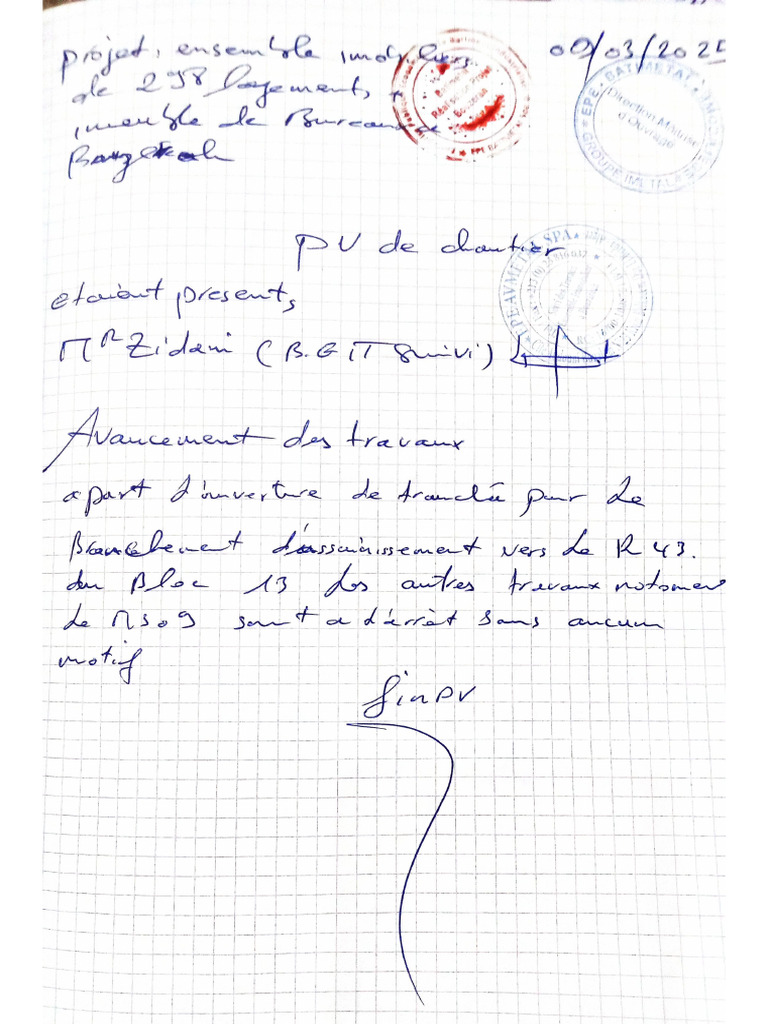 projet, ensemble imobiliers 09/03/2025
de 298 logements +
imeuble de Bureaux a
EPE BATIMETAL
Direction Maitrise
d'Ouvrage
GROUPE IMETAL
PV de chantier
etaient presents,
Mr Zidani (B.G IT Suivi)
Avancement des travaux
apart d'ouverture de tranché pour le
Branchement d'assainissement vers le R 43.
du Bloc 13 les autres travaux notamen
le MS09 sont a d'arrèt sans aucum
motif
fin PV